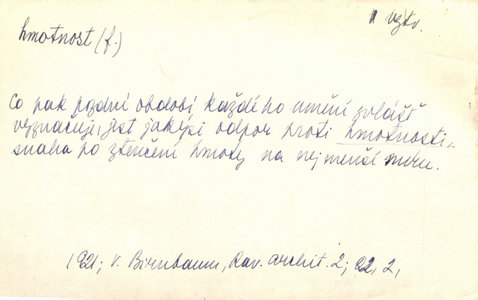 výtv.
hmotnost (f.)
Co pak pozdní období každého umění zvláště
vyznačuje, jest jakýsi odpor proti hmotnosti,
snaha po ztenčení hmoty na nejmenší míru.
1921; V. Birnbaum, Rav. archit. 2; 92, 2,